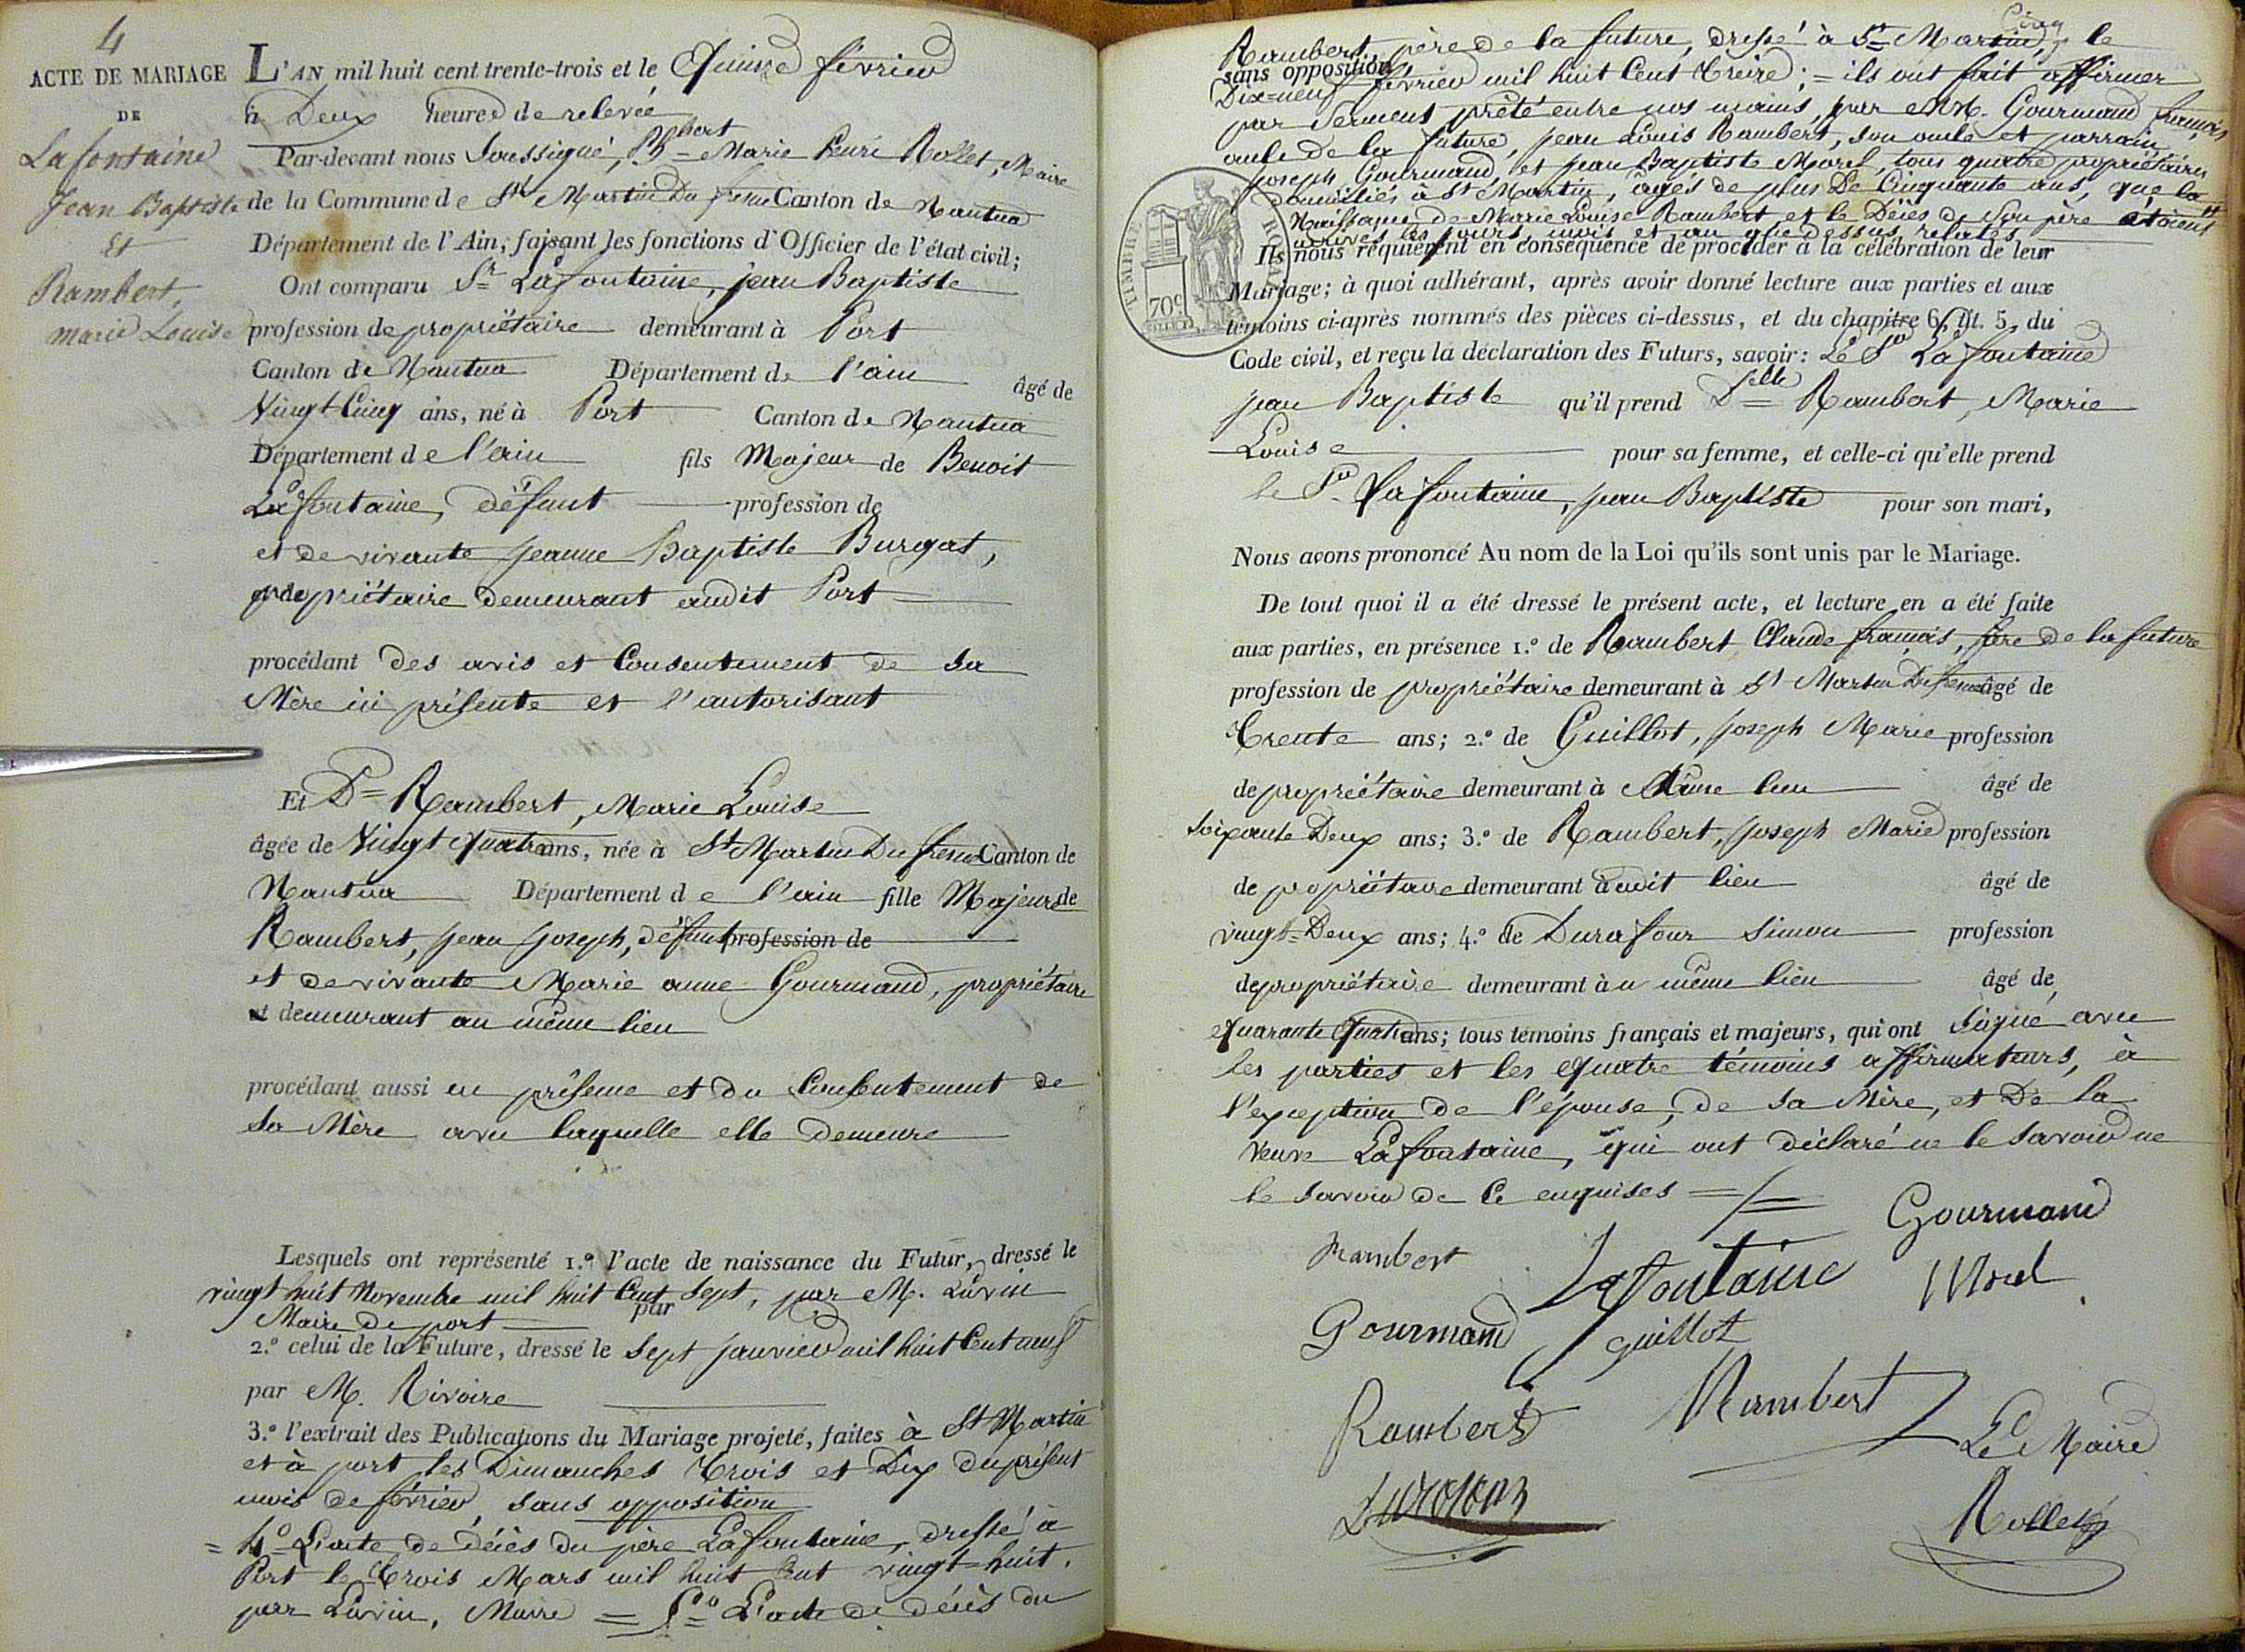 4
ACTE DE MARIAGE
DE
Lafontaine
Jean Baptiste
Et
Rambert,
marie Louise
L'AN mil huit cent trente-trois et le Quinze février
à Deux heures de relevée
Par-devant nous Soussigné, Phbert Marie henri Rollet, Maire
de la Commune de St Martin Du fresne Canton de Nantua
Département de l'Ain, faisant les fonctions d'Officier de l'état civil;
Ont comparu Sr Lafontaine, jean Baptiste
profession de propriétaire demeurant à Port
Canton de Nantua Département de l'ain âgé de
Vingt Cinq ans, né à Port Canton de Nantua
Département de l'ain fils Majeur de Benoit
Lafontaine, défunt profession de
et de vivante jeanne Baptiste Burgat,
propriétaire demeurant audit Port
procédant des avis et Consentement de sa
Mère ici présente et l'autorisant
Et De Rambert, Marie Louise
âgée de Vingt quatre ans, née à St Martin Du fresne Canton de
Nantua Département de l'ain fille Majeure de
Rambert, jean joseph, défunt profession de
et de vivante Marie anne Gourmand, propriétaire
et demeurant au même lieu
procédant aussi en présence et du Consentement de
sa Mère avec laquelle elle demeure
Lesquels ont représenté 1.º l'acte de naissance du Futur, dressé le
vingt huit Novembre mil huit Cent Sept, par M. Luvin
Maire de port par
2.º celui de la Future, dressé le Sept janvier mil huit Cent neuf
par M. Rivoire
3.º l'extrait des Publications du Mariage projeté, faites à St Martin
et à port les Dimanches Trois et Dix du présent
mois de février, sans opposition
= 4º L'acte de décès du père Lafontaine, dressé à
Port le Trois Mars mil huit Cent vingt-huit.
par Luvin, Maire = 5º L'acte de décès du
Rambert, père de la future, dressé à St Martin, le Cinq
sans opposition
Dix-neuf février mil huit Cent Treize; = ils ont fait affirmer
par Serment prêté entre nos mains, par MM. Gourmand françois
oncle de la future, jean Louis Rambert, son oncle et parrain,
joseph Gourmand, et jean Baptiste Morel, tous quatre propriétaires
domiciliés à St Martin, âgés de plus De Cinquante ans, que la
Naissance de Marie Louise Rambert et le Décès de Son père étoient
arrivés les jours, mois et an que dessus relatés
TIMBRE ROYAL
70c
Ils nous requièrent en conséquence de procéder à la célébration de leur
Mariage; à quoi adhérant, après avoir donné lecture aux parties et aux
témoins ci-après nommés des pièces ci-dessus, et du chapitre 6, tit. 5, du
Code civil, et reçu la déclaration des Futurs, savoir: Le Sr Lafontaine
jean Baptiste qu'il prend Delle Rambert, Marie
Louise pour sa femme, et celle-ci qu'elle prend
le Sr Lafontaine, jean Baptiste pour son mari,
Nous avons prononcé Au nom de la Loi qu'ils sont unis par le Mariage.
De tout quoi il a été dressé le présent acte, et lecture en a été faite
aux parties, en présence 1.º de Rambert Claude françois, frère de la future
profession de propriétaire demeurant à St Martin Du fresne âgé de
Trente ans; 2.º de Guillot, joseph Marie profession
de propriétaire demeurant à Même lieu âgé de
soixante Deux ans; 3.º de Rambert, joseph Marie profession
de propriétaire demeurant audit lieu âgé de
vingt-Deux ans; 4.º de Durafour Simon profession
de propriétaire demeurant au même lieu âgé de
quarante quatre ans; tous témoins français et majeurs, qui ont Signé avec
les parties et les quatre témoins affirmateurs, à
l'exception de l'épouse, de sa Mère, et De la
veuve Lafontaine, qui ont déclaré ne le savoir ne
le savoir de Ce enquises
Gourmand
Rambert
Lafontaine
Morel
Gourmand
guillot
Rambert
Rambert
Le Maire
Rollet